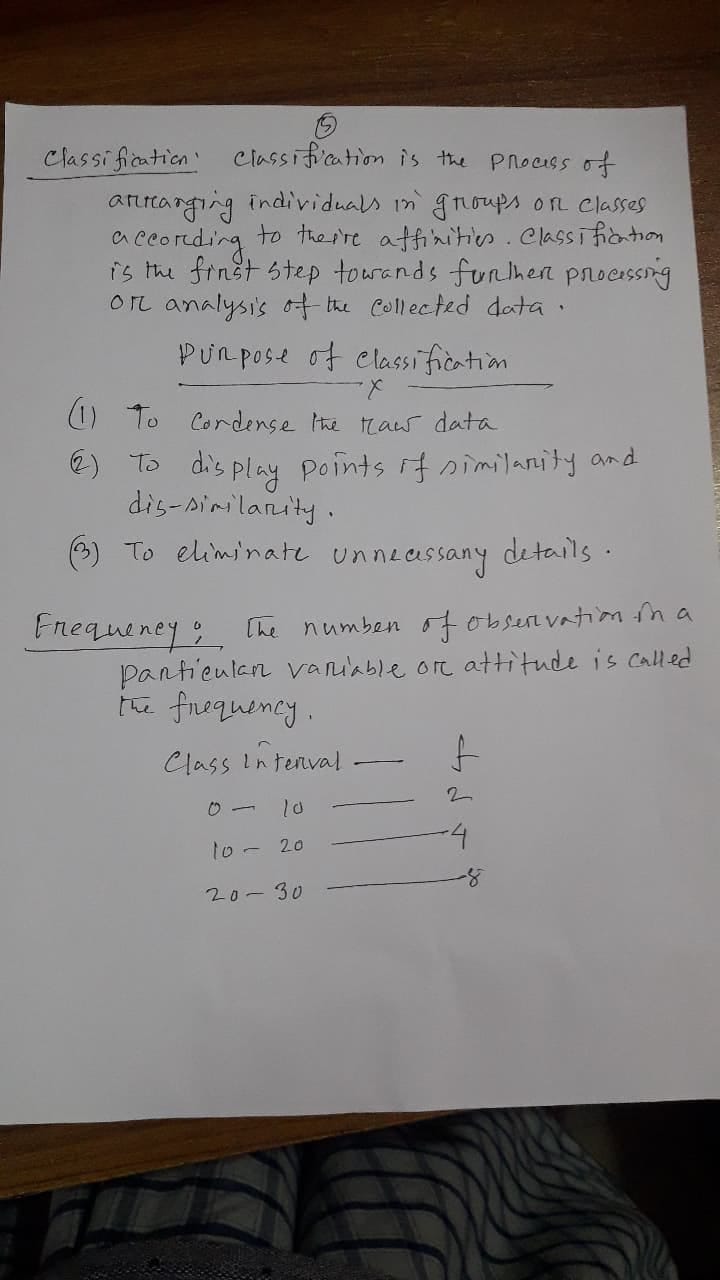 5
Classification: Classification is the process of
arranging individuals in groups or classes
according to theire affinities. Classification
is the first step towards further processing
or analysis of the collected data.
Purpose of classification
x
(1) To Condense the raw data
(2) To display points of similarity and
dis-similarity.
(3) To eliminate unnecessary details.
Frequency: The number of observation in a
particular variable or attitude is called
the frequency.
Class interval — f
0 - 10 — 2
10 - 20 — 4
20 - 30 — 8